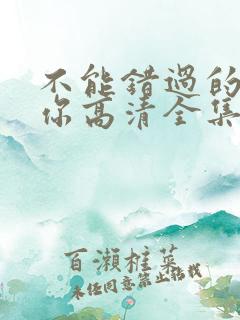 不能错过的
你高清全集
百濑椎菜
未经同意禁止转载